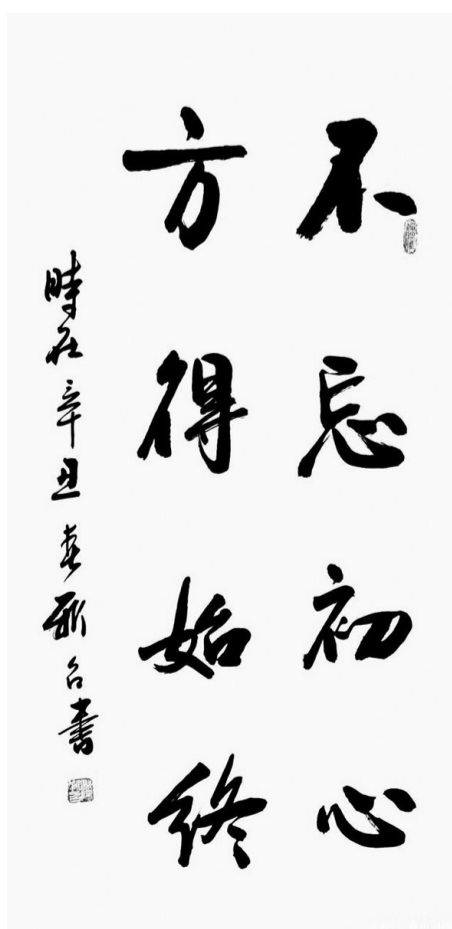 不忘初心
方得始终
時在辛丑春新台書